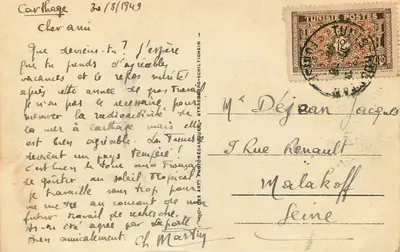 Carthage 30/8/1949
Cher ami
Que deviens-tu? J'espère
que tu prends d'agréables
vacances et le repos mérité
après cette année de gros travail
Je n'ai pas le nécessaire pour
mesurer la radioactivité de
la mer à Carthage mais elle
est bien agréable. La Tunisie
devient un pays tempéré!
c'est bien le
de goûter au soleil tropical
je travaille sans trop pour
me mettre au courant de mon
futur travail de recherche.
As-tu été agréé par Laporte?
bien amicalement. Ch. Martin
TUNISIE POSTES
TUNIS
Mr Déjean Jacques
9 Rue Renault
Malakoff
Seine